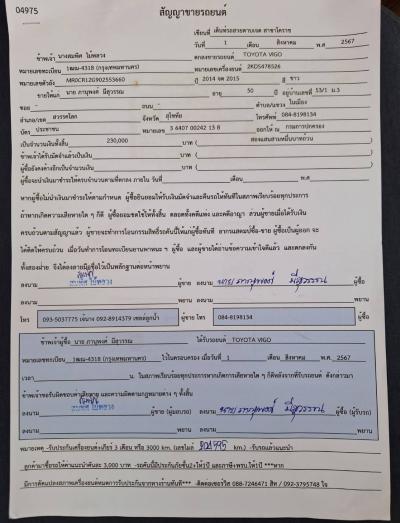 04975
สัญญาขายรถยนต์
เขียนที่ เต็นท์รถสวยตามเจต สาขาโคราช
วันที่ 1 เดือน สิงหาคม พ.ศ. 2567
ข้าพเจ้า นางสมพิศ ไม้หลวง ตกลงขายรถยนต์ TOYOTA VIGO
หมายเลขทะเบียน 1ฒฌ-4318 (กรุงเทพมหานคร) หมายเลขเครื่องยนต์ 2KDS478526
หมายเลขตัวถัง MR0CR12G902553660 ปี 2014 จด 2015 สี ขาว
ขายให้แก่ นาย ภานุพงศ์ มีสุวรรณ อายุ 50 ปี อยู่บ้านเลขที่ 53/1 ม.3
ซอย - ถนน - ตำบล/แขวง ในเมือง
อำเภอ/เขต สวรรคโลก จังหวัด สุโขทัย โทรศัพท์ 084-8198134
บัตร ประชาชน หมายเลข 3 6407 00242 13 8 ออกให้ ณ กรมการปกครอง
เป็นจำนวนเงินทั้งสิ้น 230,000 บาท ( สองแสนสามหมื่นบาทถ้วน )
ข้าพเจ้าได้รับมัดจำแล้วเป็นเงิน บาท ( )
ผู้ซื้อยังคงค้างอีกเป็นจำนวนเงิน บาท ( )
ผู้ซื้อจะนำเงินมาชำระให้ครบจำนวนตามที่ตกลง ภายใน วันที่ เดือน พ.ศ.
หากผู้ซื้อไม่นำเงินมาชำระให้ตามกำหนด ผู้ซื้อยินยอมให้ริบเงินมัดจำและคืนรถให้ทันทีในสภาพเรียบร้อยทุกประการ
ถ้าหากเกิดความเสียหายใด ๆ ก็ดี ผู้ซื้อยอมชดใช้ให้ทั้งสิ้น ตลอดทั้งคดีแพ่ง และคดีอาญา ส่วนผู้ขายเมื่อได้รับเงิน
ครบถ้วนตามสัญญาแล้ว ผู้ขายจะทำการโอนกรรมสิทธิ์รถคันนี้ให้แก่ผู้ซื้อทันที
ได้คิดให้ครบถ้วน เมื่อวันทำการโอนทะเบียนยานพาหนะ ฯ ผู้ซื้อ และผู้ขายได้อ่านข้อความเข้าใจดีแล้ว และตกลงกัน
ทั้งสองฝ่าย จึงได้ลงลายมือชื่อไว้เป็นหลักฐานต่อหน้าพยาน
ลงนาม สมพิศ ไม้หลวง ผู้ขาย ลงนาม นาย ภานุพงศ์ มีสุวรรณ ผู้ซื้อ
ลงนาม พยาน ลงนาม พยาน
โทร 093-5037775 092-8914379 ผู้ขาย โทร 084-8198134 ผู้ซื้อ
ข้าพเจ้าผู้ซื้อ นาย ภานุพงศ์ มีสุวรรณ ได้รับรถยนต์ TOYOTA VIGO
หมายเลขทะเบียน 1ฒฌ-4318 (กรุงเทพมหานคร) ไว้ในครอบครอง เมื่อวันที่ 1 เดือน สิงหาคม พ.ศ. 2567
เวลา น. ในสภาพเรียบร้อยทุกประการหากเกิดการเสียหายใด ๆ ก็ดีหลังจากที่รับรถยนต์ ดังกล่าวมา
ข้าพเจ้าขอรับผิดชอบค่าเสียหาย และความผิดตามกฎหมายต่าง ๆ ทั้งสิ้น
ลงนาม สมพิศ ไม้หลวง ผู้ขาย (ผู้มอบรถ) ลงนาม นาย ภานุพงศ์ มีสุวรรณ ผู้ซื้อ (ผู้รับรถ)
ลงนาม พยาน ลงนาม พยาน
หมายเหตุ -รับประกันเครื่องยนต์+เกียร์ 3 เดือน หรือ 3000 กม. -รับรถแล้วแนะนำ
ลูกค้ามาซื้อรถให้ค่าแนะนำคันละ 3,000 บาท
088-7246471 สิท / 093-3795748 ใจ